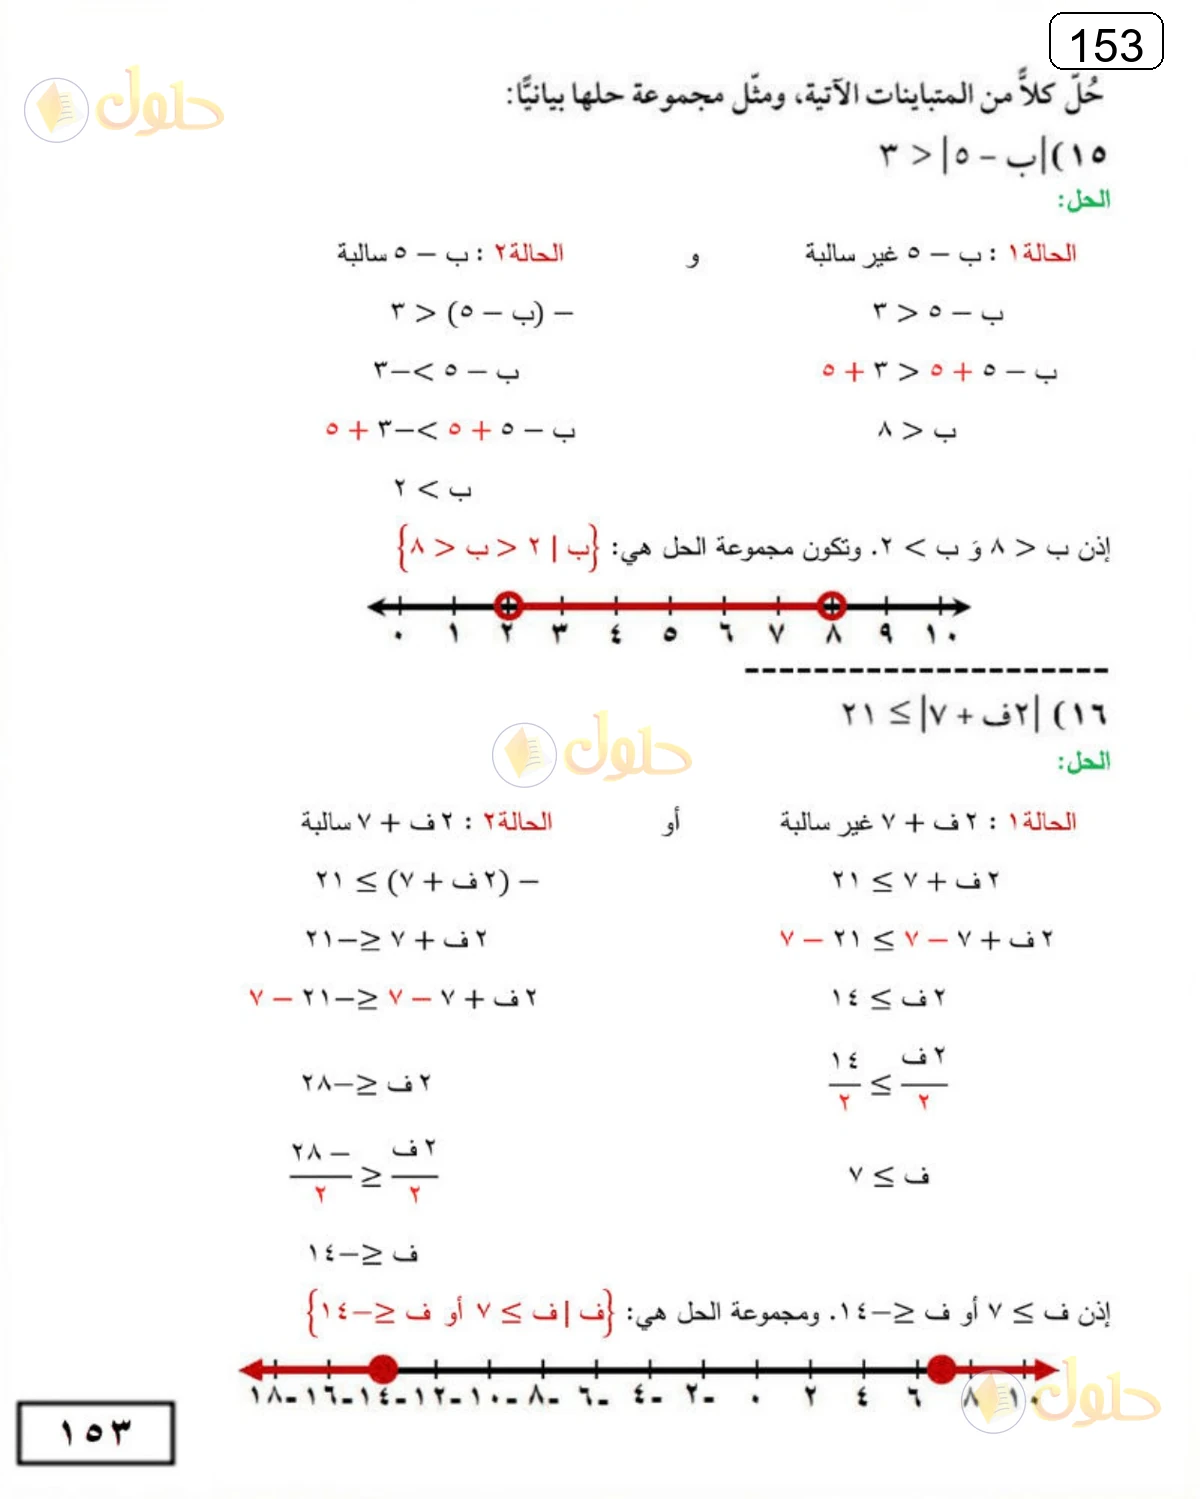 153
حلول
حُلّ كلاًّ من المتباينات الآتية، ومثّل مجموعة حلها بيانيًّا:
١٥) |ب − ٥| < ٣
الحل:
الحالة١ : ب − ٥ غير سالبة و الحالة٢ : ب − ٥ سالبة
ب − ٥ < ٣ − (ب − ٥) < ٣
ب − ٥ + ٥ < ٣ + ٥ ب − ٥ > −٣
ب < ٨ ب − ٥ + ٥ > −٣ + ٥
ب > ٢
إذن ب < ٨ وَ ب > ٢. وتكون مجموعة الحل هي: {ب | ٢ < ب < ٨}
٠ ١ ٢ ٣ ٤ ٥ ٦ ٧ ٨ ٩ ١٠
١٦) |٢ف + ٧| ≥ ٢١
حلول
الحل:
الحالة١ : ٢ف + ٧ غير سالبة أو الحالة٢ : ٢ف + ٧ سالبة
٢ف + ٧ ≥ ٢١ − (٢ف + ٧) ≥ ٢١
٢ف + ٧ − ٧ ≥ ٢١ − ٧ ٢ف + ٧ ≤ −٢١
٢ف ≥ ١٤ ٢ف + ٧ − ٧ ≤ −٢١ − ٧
٢ف/٢ ≥ ١٤/٢ ٢ف ≤ −٢٨
ف ≥ ٧ ٢ف/٢ ≤ −٢٨/٢
ف ≤ −١٤
إذن ف ≥ ٧ أو ف ≤ −١٤. ومجموعة الحل هي: {ف | ف ≥ ٧ أو ف ≤ −١٤}
-١٨ -١٦ -١٤ -١٢ -١٠ -٨ -٦ -٤ -٢ ٠ ٢ ٤ ٦ ٨ ١٠
حلول
١٥٣